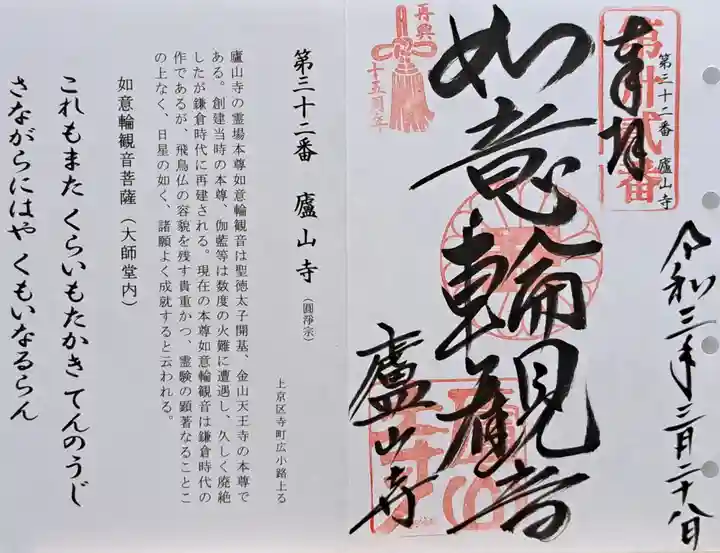 第三十二番 廬山寺
第卅弐番
奉拝
令和三年三月二十八日
再興
十五周年
如意輪観音
廬山寺
第三十二番　廬山寺（圓淨宗）
上京区寺町広小路上る
廬山寺の霊場本尊如意輪観音は聖徳太子開基、金山天王寺の本尊で
ある。創建当時の本尊、伽藍等は数度の火難に遭遇し、久しく廃絶
したが鎌倉時代に再建される。現在の本尊如意輪観音は鎌倉時代の
作であるが、飛鳥仏の容貌を残す貴重かつ、霊験の顕著なることこ
の上なく、日星の如く、諸願よく成就すると云われる。
如意輪観音菩薩（大師堂内）
これもまた くらいもたかき てんのうじ
さながらにはや くもいなるらん